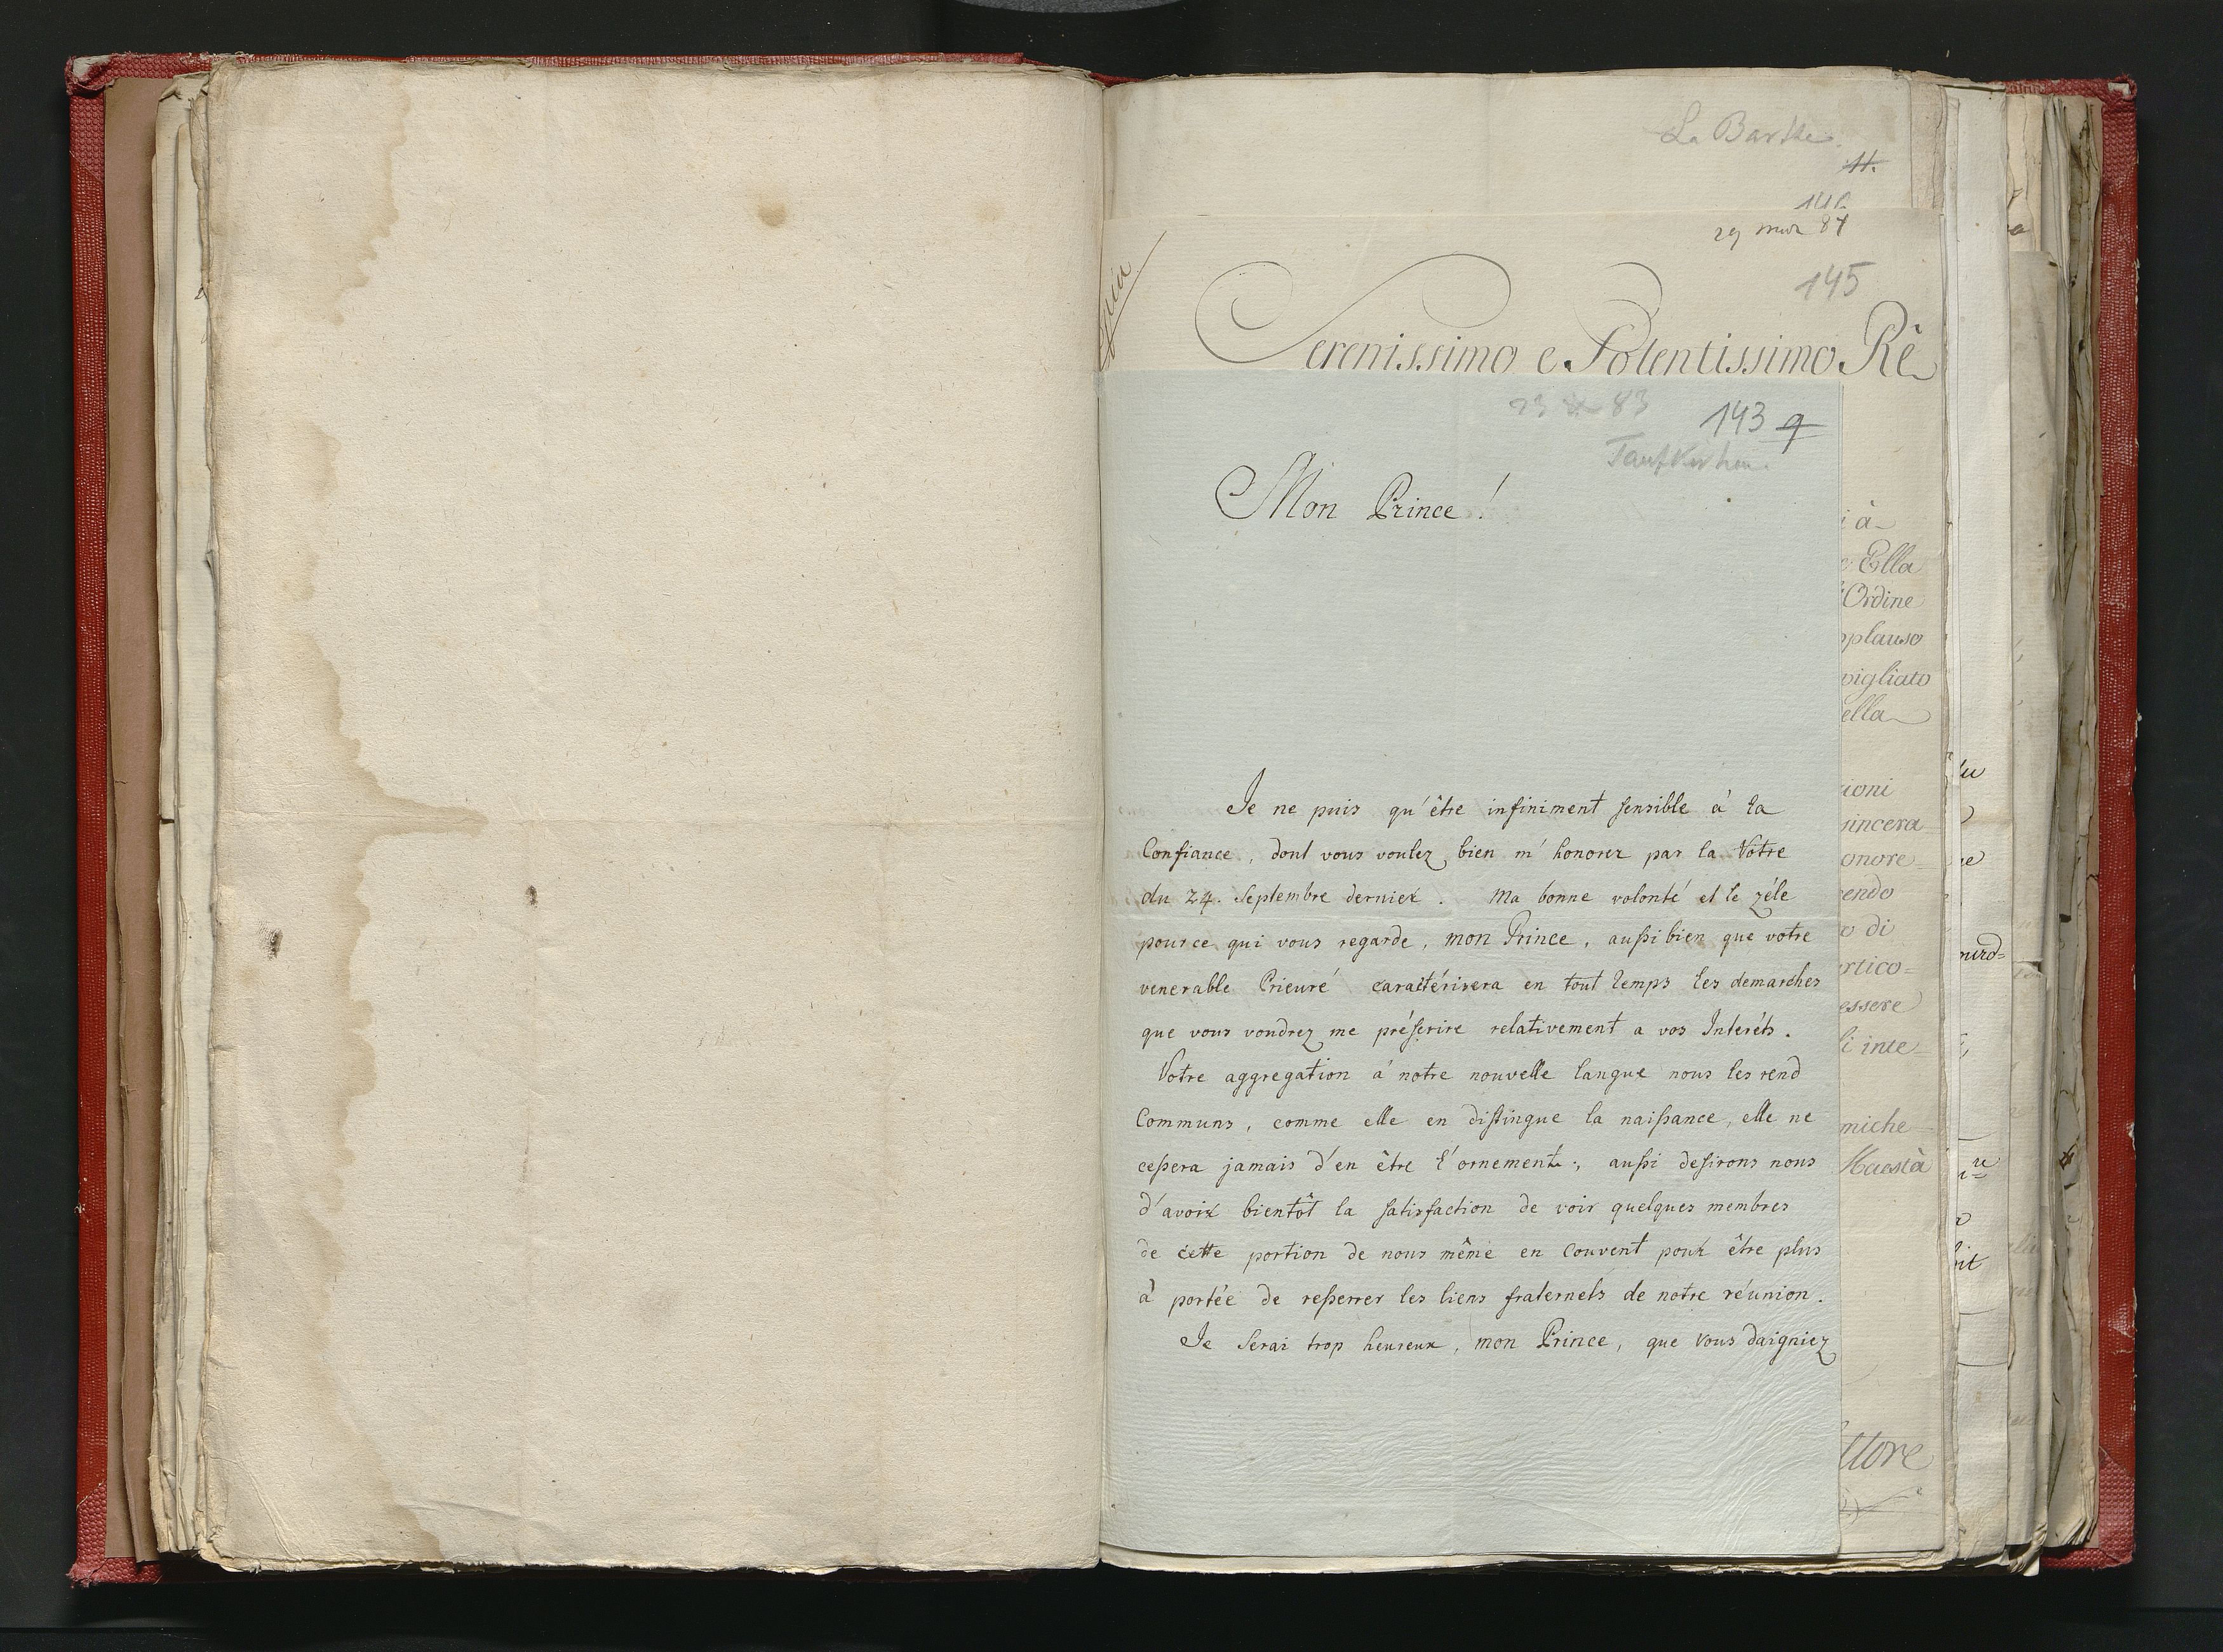 La Barthe.
11.
29 mars 87
145
Serenissimo e Potentissimo Rè
143 9
Taufkirchen
Mon Prince!
Je ne puis qu'être infiniment sensible à la
Confiance, dont vous voulez bien m'honorer par la Votre
du 24. Septembre dernier. Ma bonne volonté et le zéle
pour ce qui vous regarde, mon Prince, aussi bien que votre
venerable Prieuré caractérisera en tout temps les demarches
que vous voudrez me préscrire relativement a vos Interéts.
Votre aggregation á notre nouvelle langue nous les rend
Communs, comme elle en distingue la naissance, elle ne
cessera jamais d'en être l'ornement; aussi desirons nous
d'avoir bientôt la satisfaction de voir quelques membres
de cette portion de nous même en Couvent pour être plus
à portée de resserrer les liens fraternels de notre réunion.
Je Serai trop heureux, mon Prince, que vous daigniez
i à
Ella
Ordine
pplauso
vigliato
ella
ioni
sincera
onore
endo
o di
rtico=
essere
li inte=
miche
Maestà
ttore